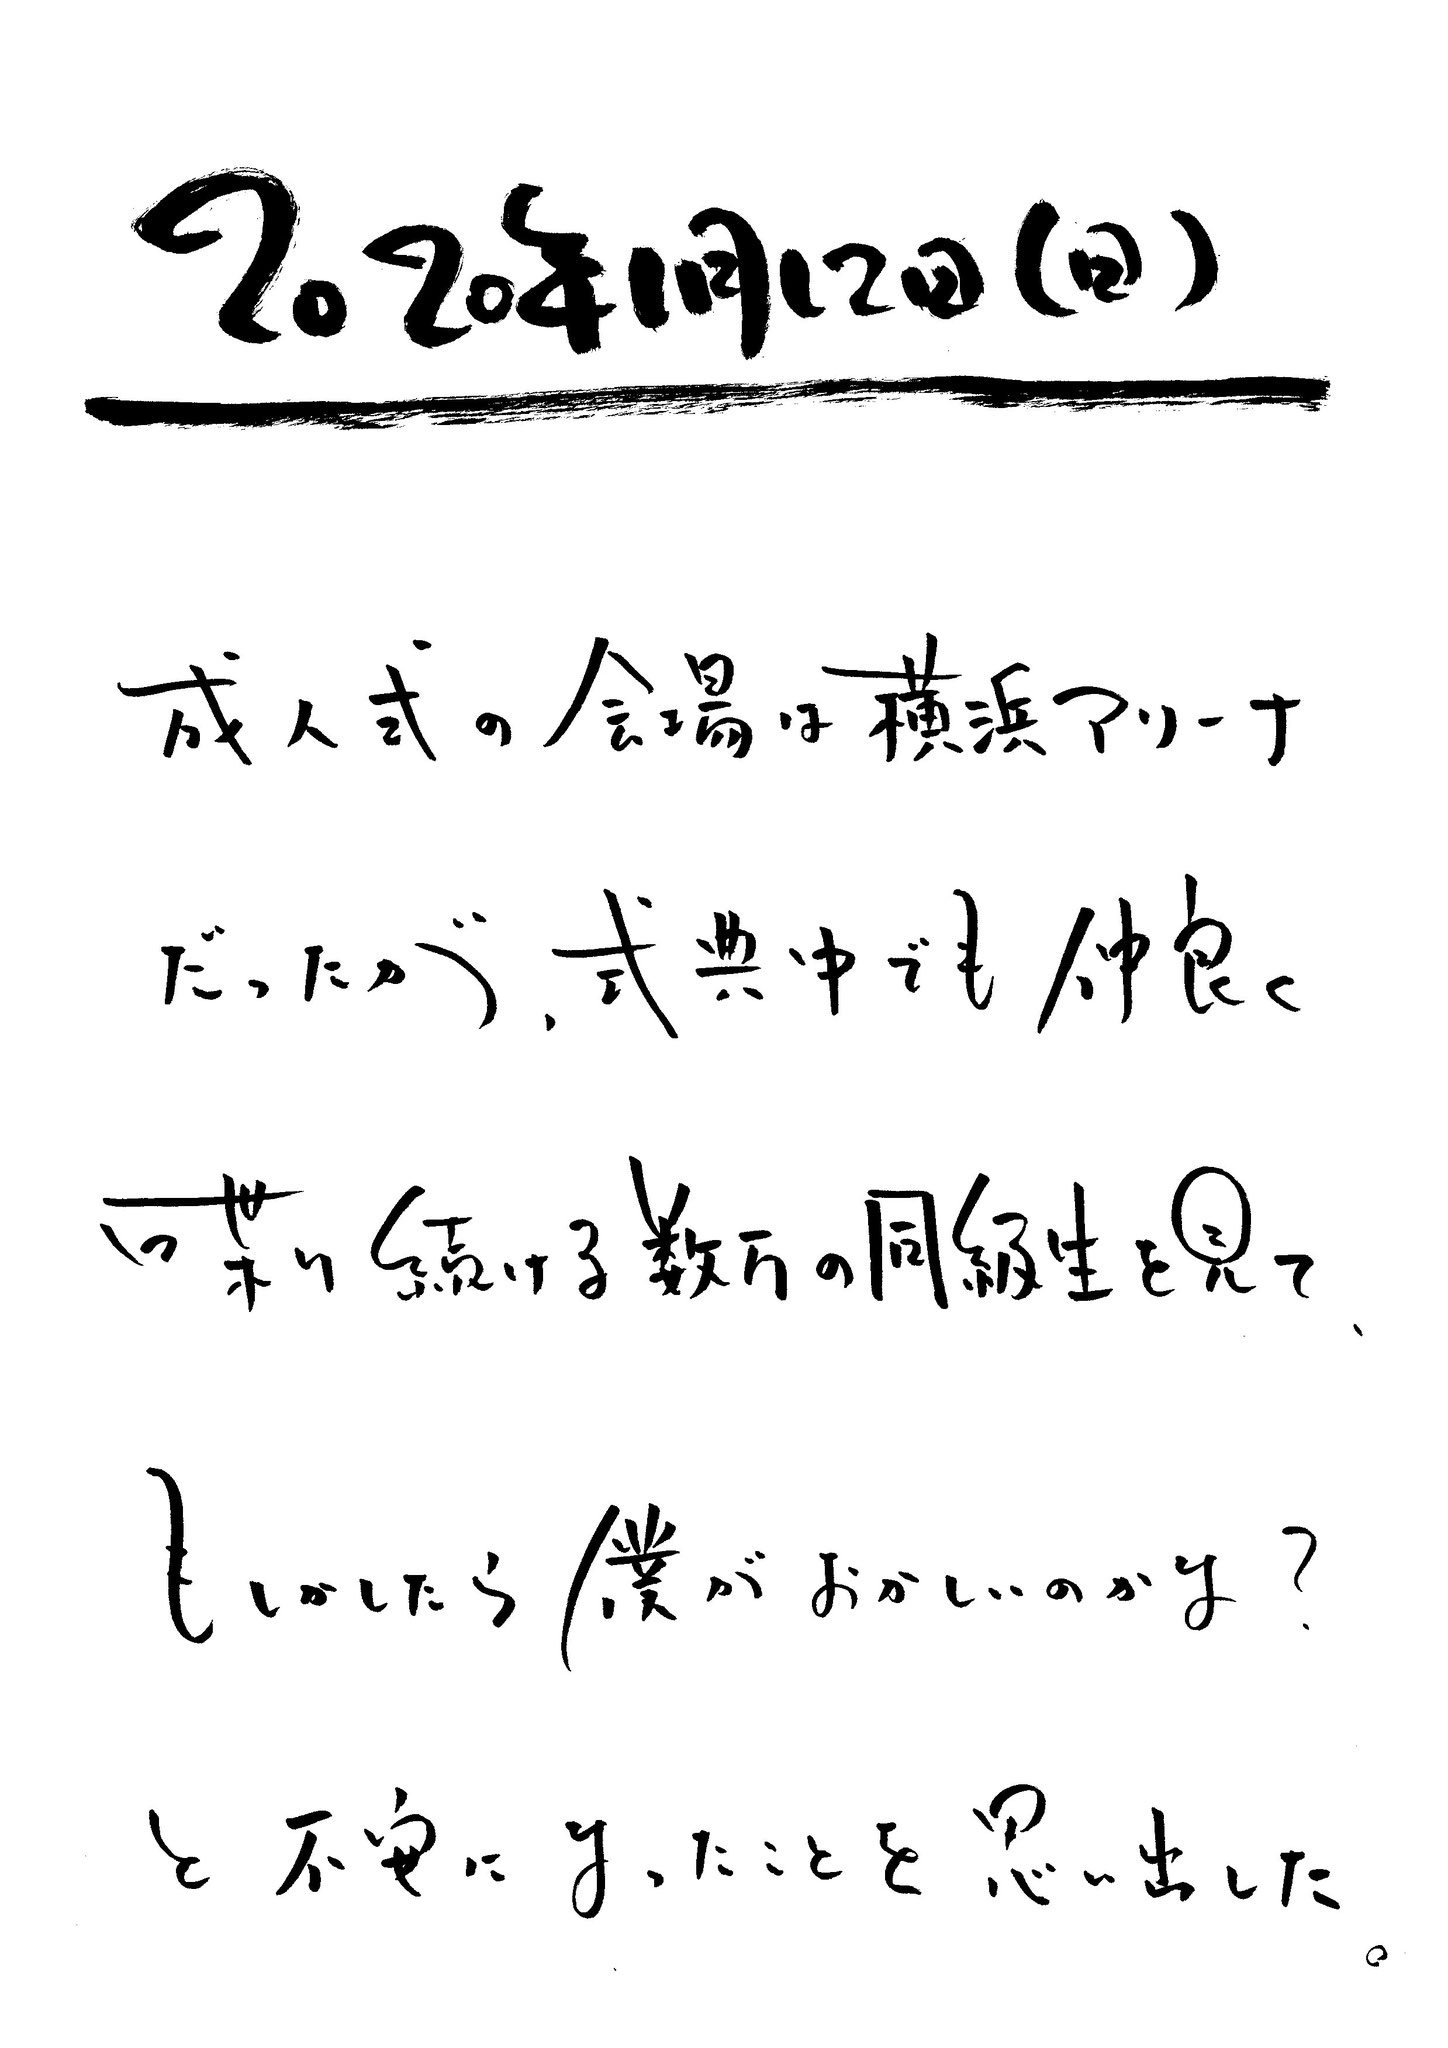 2020年1月12日(日)
成人式の会場は横浜アリーナ
だったが、式典中でも仲良く
喋り続ける数万の同級生を見て、
もしかしたら僕がおかしいのかな?
と不安になったことを思い出した。